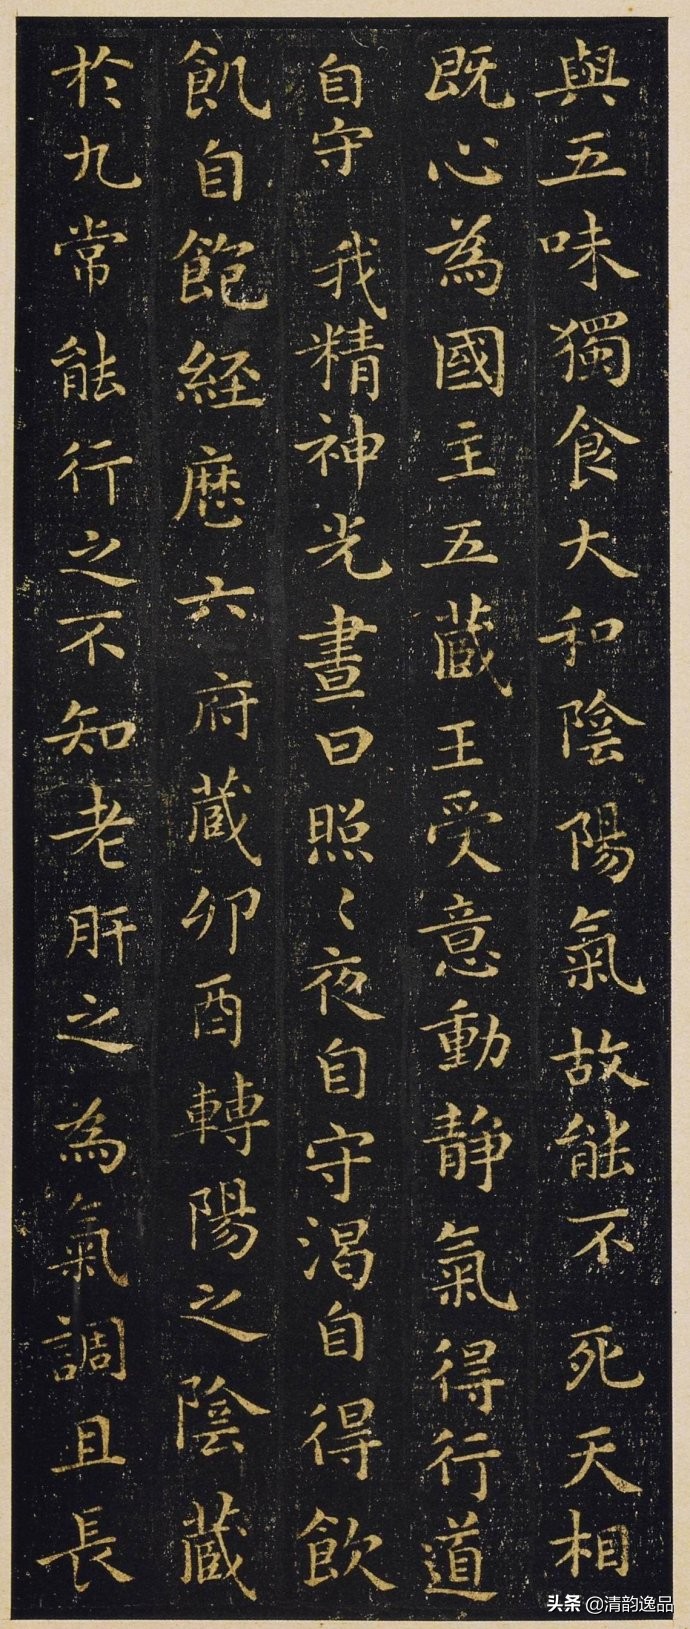 與五味獨食大和陰陽氣故能不死天相
既心為國主五蔵王受意動静氣得行道
自守我精神光晝日照〻夜自守渴自得飲
飢自飽經歷六府蔵卯酉轉陽之陰蔵
於九常能行之不知老肝之為氣調且長
头条 @清韵逸品